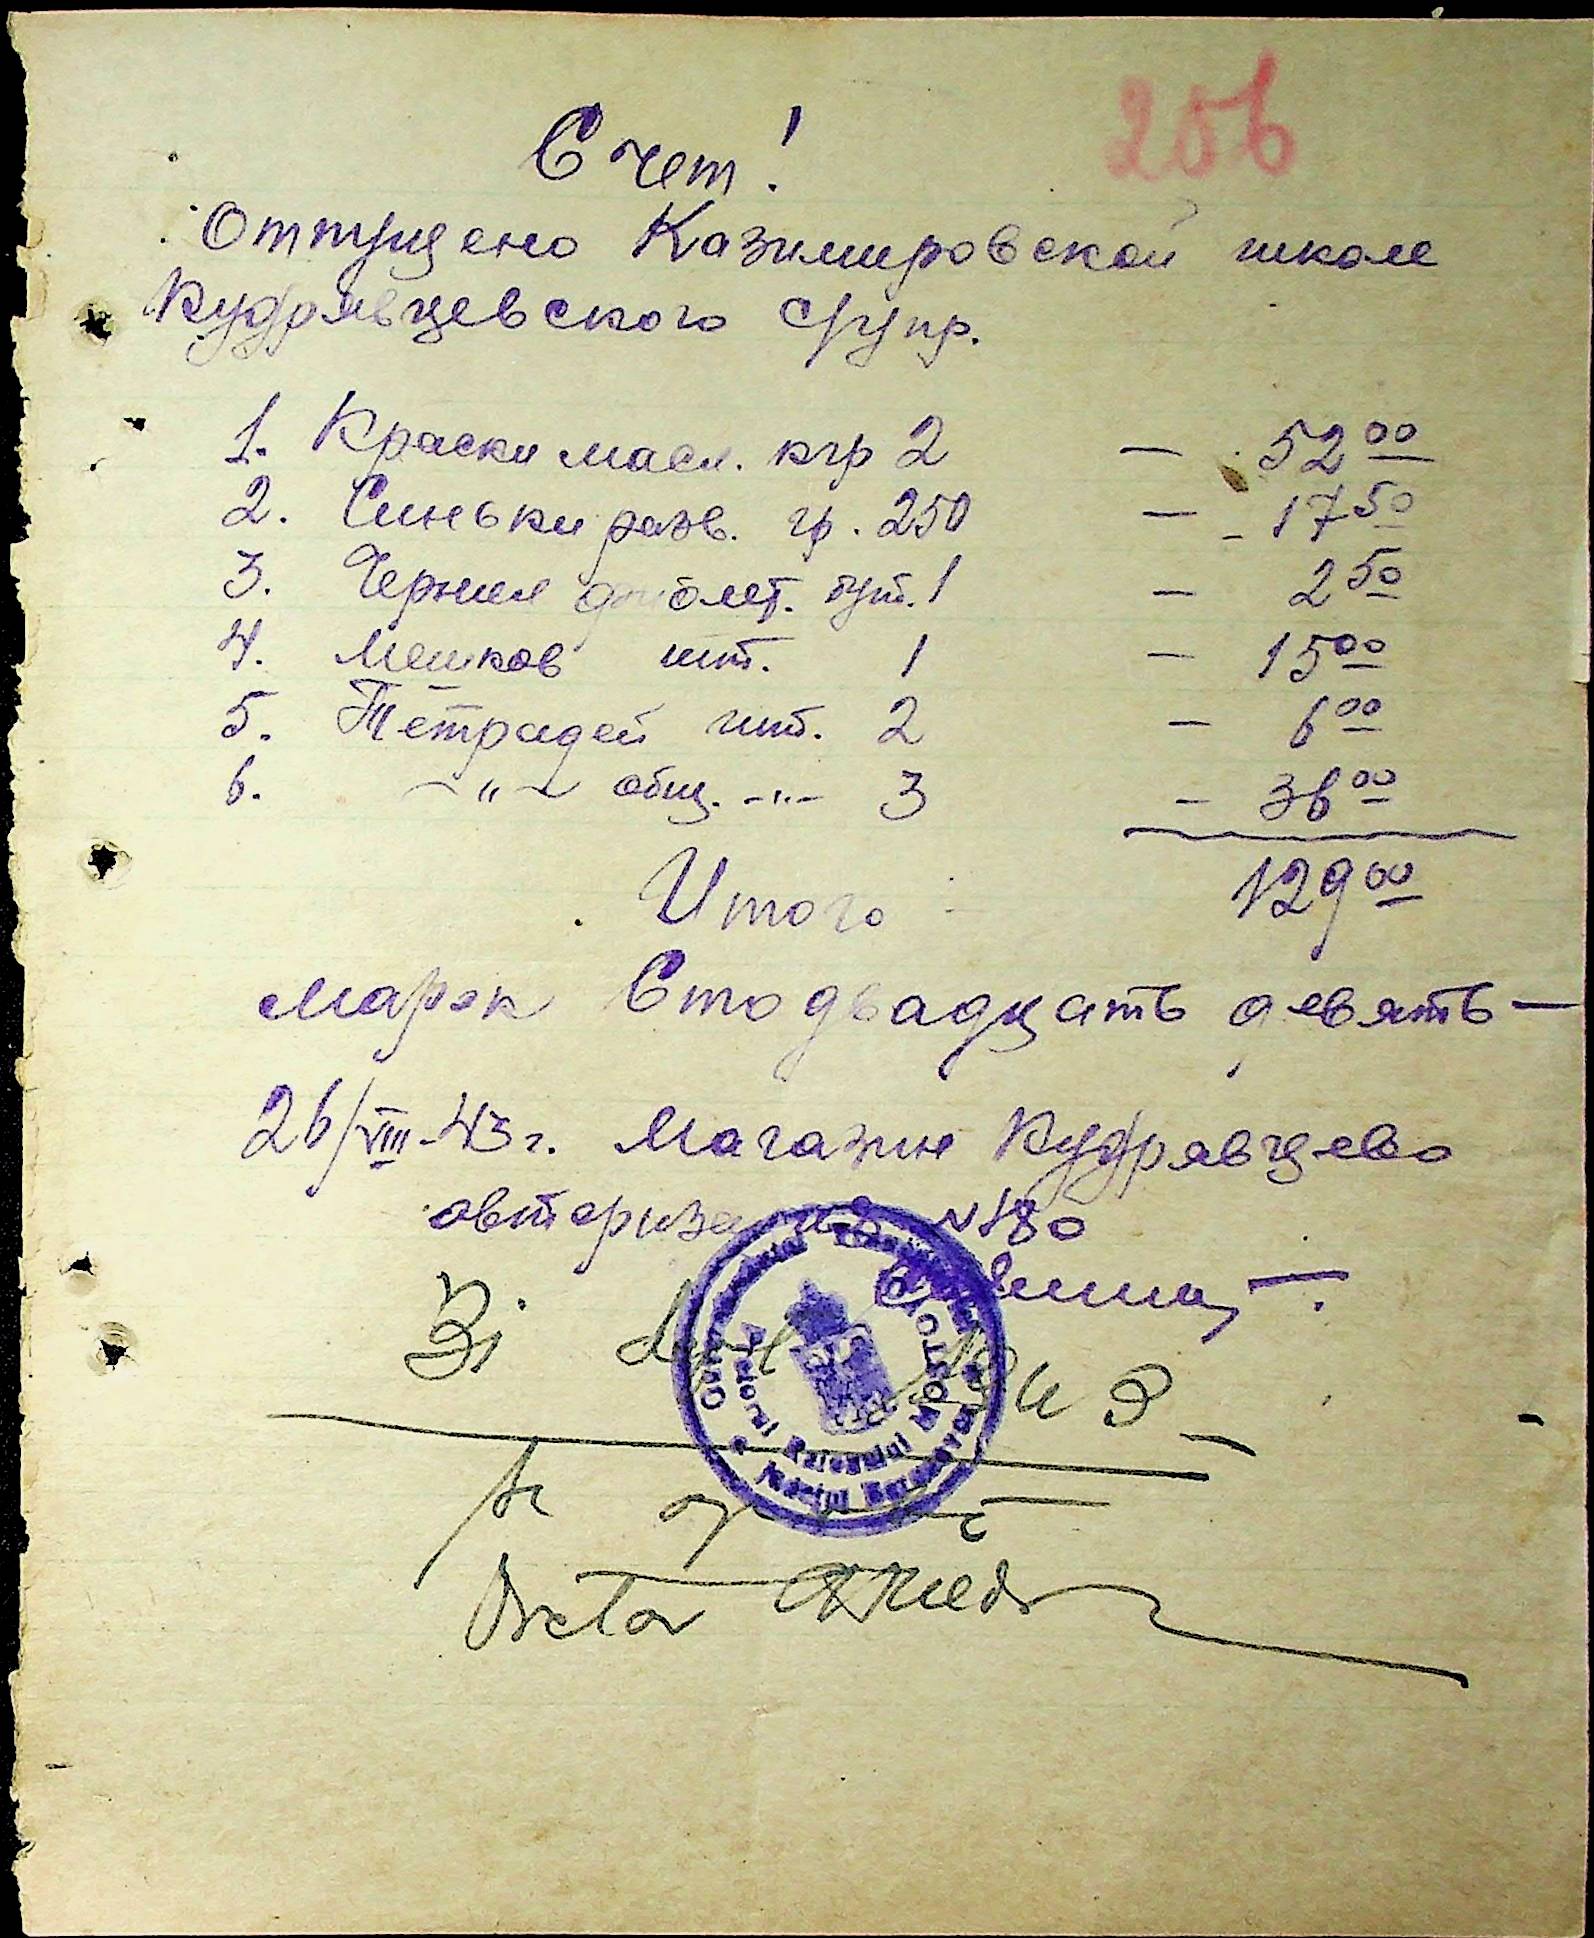 206
Счет!
Отпущено Казимировской школе
Кудрявцевского с/упр.
1. Краски масл. кгр 2 — 52 00
2. Синьки разв. гр. 250 — 17 50
3. Чернил фиолет. бут. 1 — 2 50
4. Мешков шт. 1 — 15 00
5. Тетрадей шт. 2 — 6 00
6. —"— общ. —"— 3 — 36 00
Итого 129 00
Марок Сто двадцать девять —
26/VIII-43 г. Магазин Кудрявцево
авторизация №180
1943
Pretorul Raionului MOSTOVOI
Județul